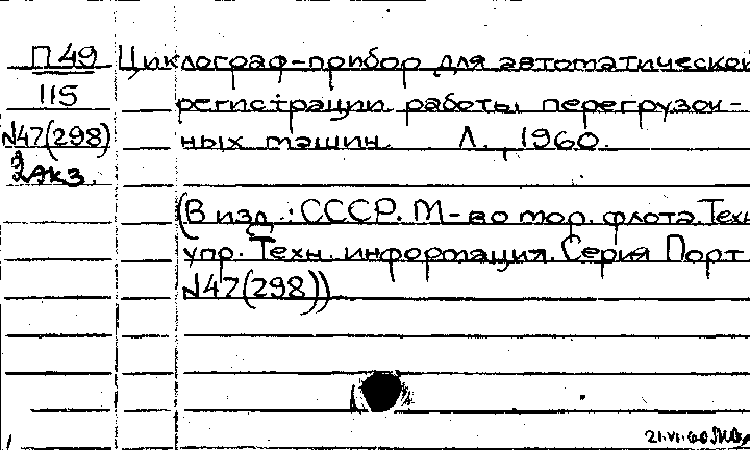 П 49 Циклограф-прибор для автоматической
115 регистрации работы перегрузоч-
№47(298) ных машин. Л., 1960.
2экз.
(В изд.: СССР. М-во мор. флота. Техн
упр. Техн. информация. Серия Порт
№47(298))
21.VI.60